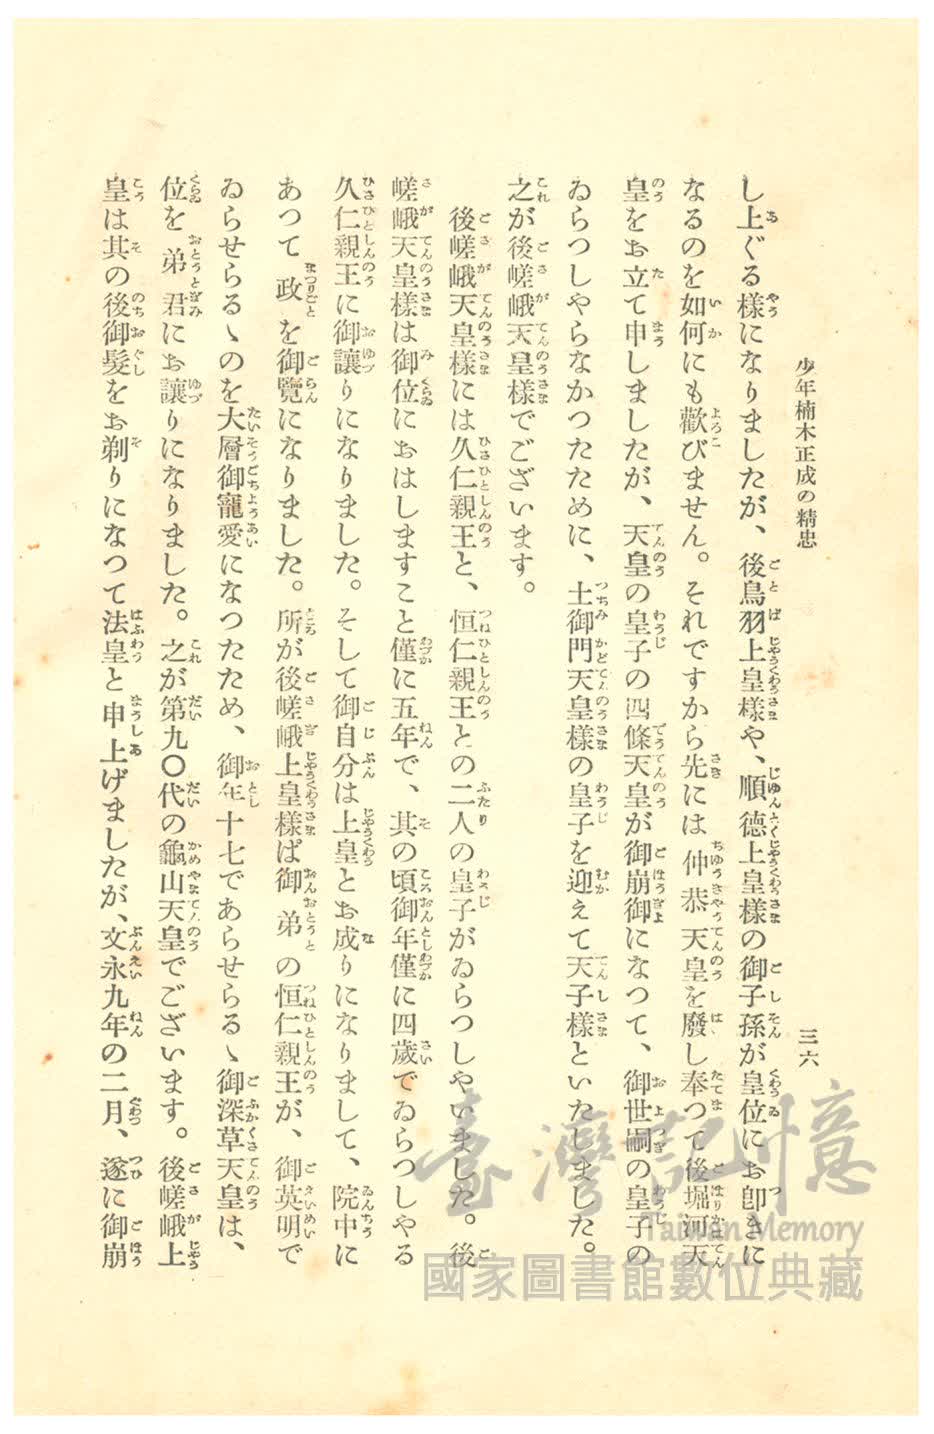 少年楠木正成の精忠
三六
し上ぐる樣になりましたが、後鳥羽上皇樣や、順德上皇樣の御子孫が皇位にお卽きに
なるのを如何にも歡びません。それですから先には仲恭天皇を廢し奉つて後堀河天
皇をお立て申しましたが、天皇の皇子の四條天皇が御崩御になつて、御世嗣の皇子の
ゐらつしやらなかつたために、土御門天皇樣の皇子を迎えて天子樣といたしました。
之が後嵯峨天皇樣でございます。
後嵯峨天皇樣には久仁親王と、恒仁親王との二人の皇子がゐらつしやいました。後
嵯峨天皇樣は御位におはしますこと僅に五年で、其の頃御年僅に四歲でゐらつしやる
久仁親王に御讓りになりました。そして御自分は上皇とお成りになりまして、院中に
あつて政を御覽になりました。所が後嵯峨上皇樣ぱ御弟の恒仁親王が、御英明で
ゐらせらるゝのを大層御寵愛になつたため、御年十七であらせらるゝ御深草天皇は、
位を弟君にお讓りになりました。之が第九〇代の龜山天皇でございます。後嵯峨上
皇は其の後御髮をお剃りになつて法皇と申上げましたが、文永九年の二月、遂に御崩
臺灣記憶
Taiwan Memory
國家圖書館數位典藏